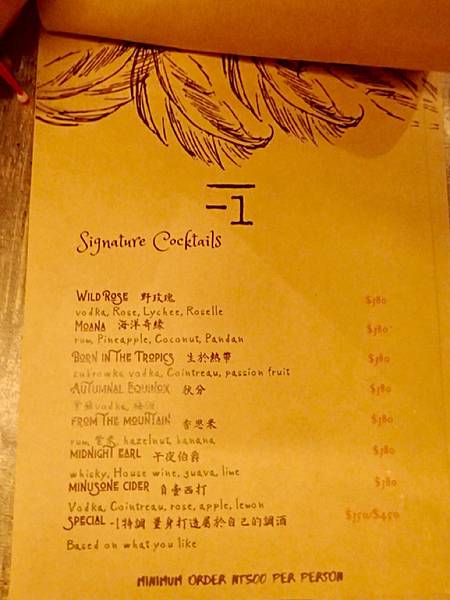 -1
Signature Cocktails
WILD ROSE 野玫瑰 $380
vodka, Rose, Lychee, Roselle
MOANA 海洋奇緣 $380
rum, Pineapple, Coconut, Pandan
BORN IN THE TROPICS 生於熱帶 $380
zubrowka vodka, Cointreau, passion fruit
AUTUMNAL EQUINOX 秋分 $380
vodka,
FROM THE MOUNTAIN $380
rum, hazelnut, banana
MIDNIGHT EARL 午夜伯爵 $380
whisky, House wine, guava, lime
MINUSONE CIDER 自壹西打 $380
Vodka, Cointreau, rose, apple, lemon
SPECIAL -1特調 量身打造屬於自己的調酒 $350/$450
Based on what you like
MINIMUM ORDER NT500 PER PERSON